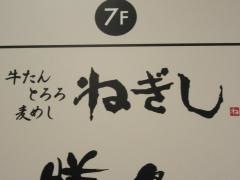 7F
牛たん
とろろ
麦めし
ねぎし
ね